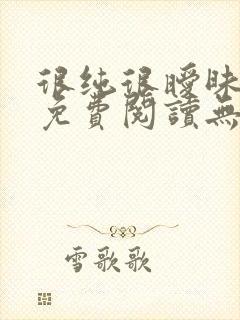 很纯很曖昧
免費閱讀無
雪歌歌